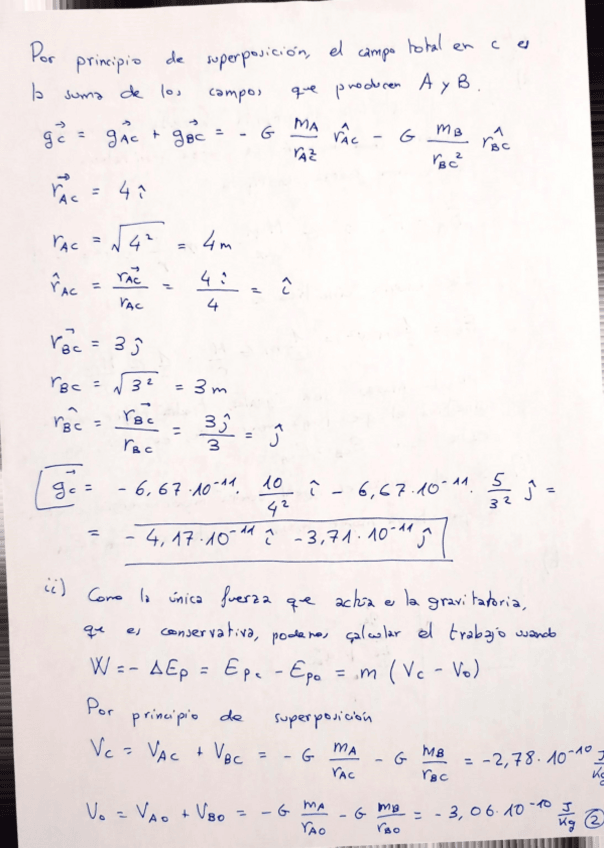 Por principio de superposición, el campo total en C es
la suma de los campos que producen A y B.
g⃗c = g⃗AC + g⃗BC = - G mA/rAC² r̂AC - G mB/rBC² r̂BC
r⃗AC = 4 î
rAC = √4² = 4m
r̂AC = r⃗AC/rAC = 4 î/4 = î
r⃗BC = 3 ĵ
rBC = √3² = 3m
r̂BC = r⃗BC/rBC = 3ĵ/3 = ĵ
g⃗c = - 6,67·10⁻¹¹· 10/4² î - 6,67·10⁻¹¹· 5/3² ĵ =
= - 4,17·10⁻¹¹ î - 3,71·10⁻¹¹ ĵ
ii) Como la única fuerza que actúa es la gravitatoria,
que es conservativa, podemos calcular el trabajo usando
W = - ΔEp = Epc - Epo = m (Vc - Vo)
Por principio de superposición
Vc = VAC + VBC = - G mA/rAC - G mB/rBC = -2,78·10⁻¹⁰ J/Kg
Vo = VAO + VBO = - G mA/rAO - G mB/rBO = - 3,06·10⁻¹⁰ J/Kg ②